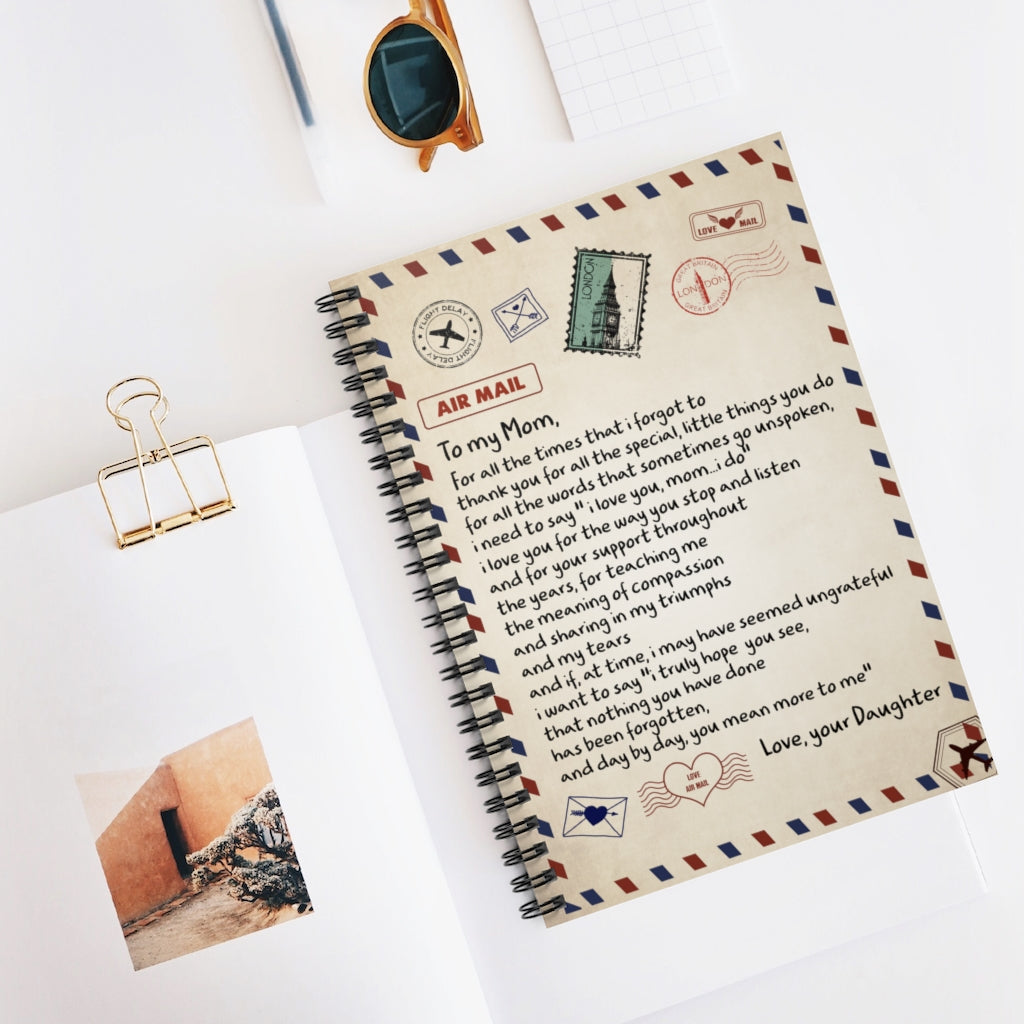 LOVE MAIL
LONDON
GREAT BRITAIN
LONDON
GREAT BRITAIN
FLIGHT DELAY
FLIGHT DELAY
AIR MAIL
To my Mom,
For all the times that i forgot to
thank you for all the special, little things you do
for all the words that sometimes go unspoken,
i need to say "i love you, mom...i do"
i love you for the way you stop and listen
and for your support throughout
the years, for teaching me
the meaning of compassion
and sharing in my triumphs
and my tears
and if, at time, i may have seemed ungrateful
i want to say "i truly hope you see,
that nothing you have done
has been forgotten,
and day by day, you mean more to me"
Love, your Daughter
LOVE
AIR MAIL